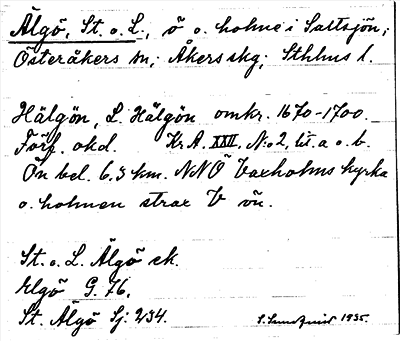 Älgö, St. o. L., ö o. holme i Saltsjön;
Österåkers sn; Åkers skg; Sthlms l.
Hälgön, L. Hälgön omkr. 1670-1700.
Förf. okd. Kr. A. XXII, N:o 2, lit. a o. b.
Ön bel. 6.3 km. NNÖ Vaxholms kyrka
o. holmen strax V ön.
St. o. L. Älgö ek.
Elgö G. 76.
St. Älgö Sj: 234.
1935.